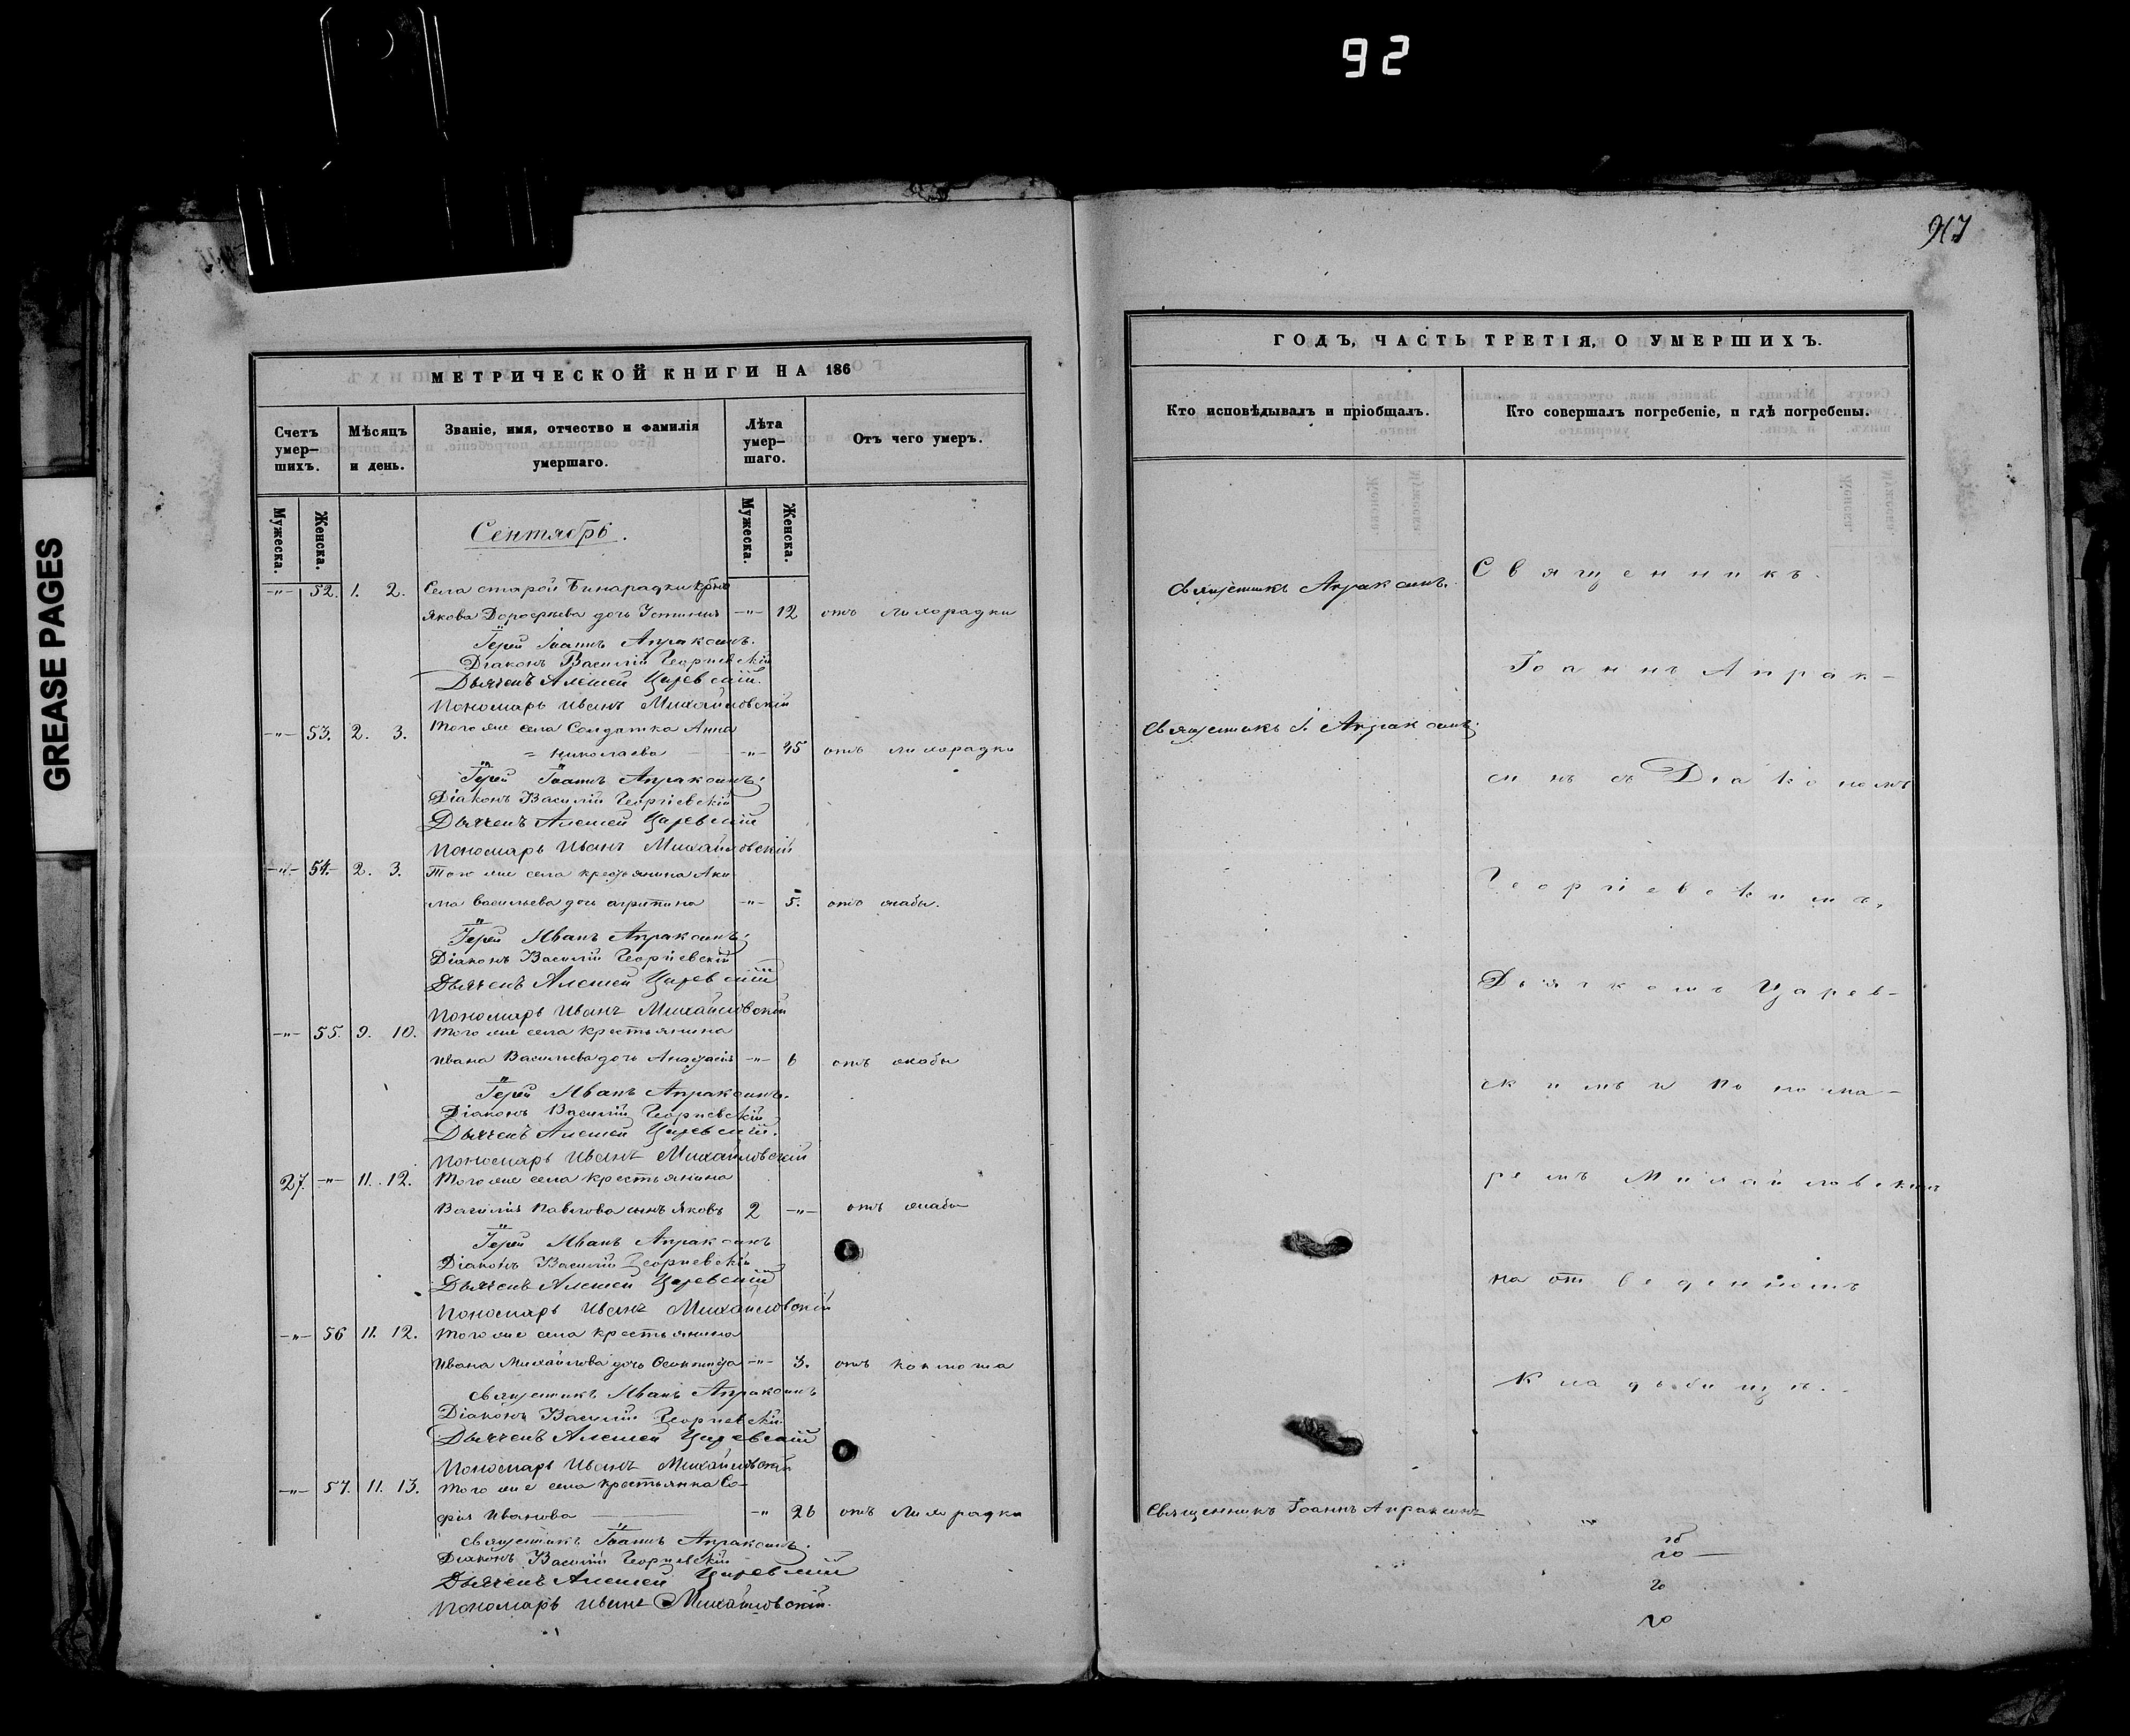 92
917
GREASE PAGES
МЕТРИЧЕСКОЙ КНИГИ НА 186
Счетъ умер-шихъ.
Мѣсяцъ и день.
Званіе, имя, отчество и фамилія умершаго.
Лѣта умер-шаго.
Отъ чего умеръ.
Мужеска.
Женска.
Мужеска.
Женска.
Сентябрь.
-"- 52. 1. 2. Села старой Бинарадки
Якова Дорофѣева дочь Устинія -"- 12 отъ лихорадки
Іерей Іоаннъ Апраксинъ.
Діаконъ Василій Георгіевскій
Дьячекъ Алексей Царевскій.
Пономарь Иванъ Михайловскій
-"- 53. 2. 3. Того же села Солдатка Анна
= Николаева -"- 45 отъ лихорадки
Іерей Іоаннъ Апраксинъ.
Діаконъ Василій Георгіевскій
Дьячекъ Алексей Царевскій
Пономарь Иванъ Михайловскій
-"- 54. 2. 3. Того же села крестьянина Аки
ма Васильева дочь -"- 5. отъ жабы.
Іерей Иванъ Апраксинъ.
Діаконъ Василій Георгіевскій
Дьячекъ Алексей Царевскій
Пономарь Иванъ Михайловскій
-"- 55. 9. 10. Того же села крестьянина
Ивана Васильева дочь -"- 6 отъ жабы
Іерей Иванъ Апраксинъ.
Діаконъ Василій Георгіевскій
Дьячекъ Алексей Царевскій.
Пономарь Иванъ Михайловскій
27. -"- 11. 12. Того же села крестьянина
Василія Павлова сынъ Яковъ 2 -"- отъ жабы
Іерей Иванъ Апраксинъ
Діаконъ Василій Георгіевскій
Дьячекъ Алексей Царевскій
Пономарь Иванъ Михайловскій
-"- 56 11. 12. Того же села крестьянина
Ивана Михайлова дочь -"- 3. отъ
Священникъ Иванъ Апраксинъ
Діаконъ Василій Георгіевскій
Дьячекъ Алексей Царевскій
Пономарь Иванъ Михайловскій
-"- 57. 11. 13. Того же села крестьянка Со-
фія Иванова -"- 26 отъ лихорадки
Священникъ Іоаннъ Апраксинъ.
Діаконъ Василій Георгіевскій
Дьячекъ Алексей Царевскій
Пономарь Иванъ Михайловскій.
ГОДЪ, ЧАСТЬ ТРЕТІЯ, О УМЕРШИХЪ.
Кто исповѣдывалъ и пріобщалъ.
Кто совершалъ погребеніе, и гдѣ погребены.
Священникъ Апраксинъ.
Священникъ І. Апраксинъ
Священникъ Іоаннъ Апраксинъ
Священникъ.
Іоаннъ Апрак-
синъ съ Діакономъ
Георгіевскимъ,
Дьячкомъ Царев-
скимъ и Понома-
ремъ Михайловскимъ
на отведенномъ
кладбищѣ.